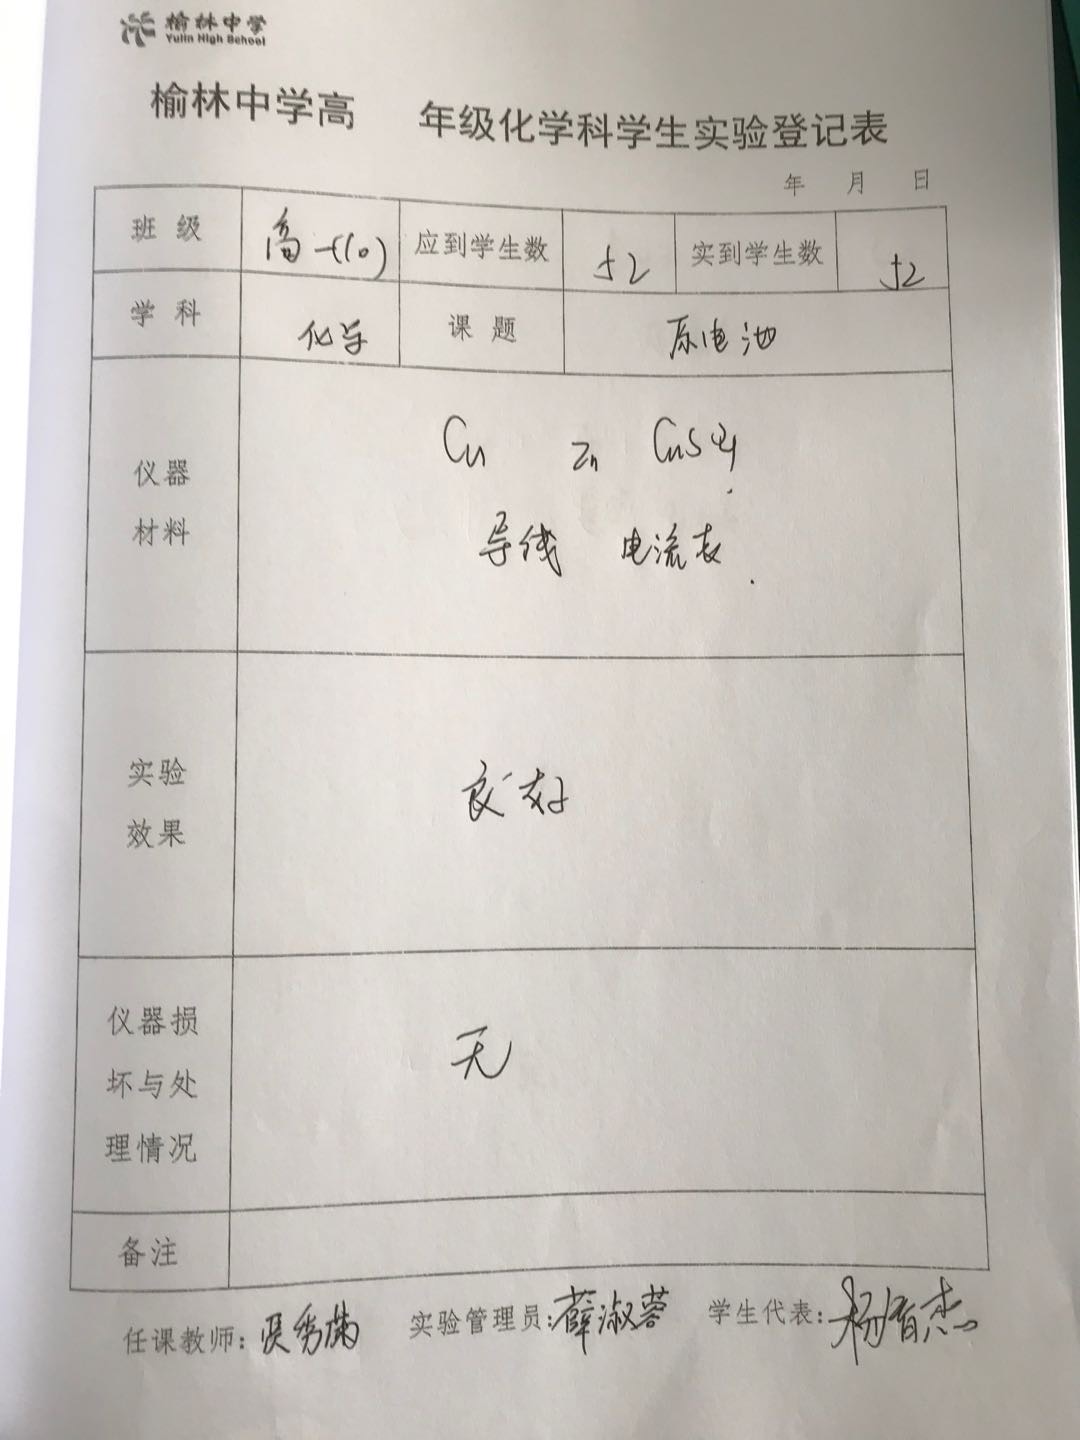 榆林中学
Yulin High School
榆林中学高 年级化学科学生实验登记表
年 月 日
班 级 高一(10) 应到学生数 52 实到学生数 52
学 科 化学 课 题 原电池
仪器
材料
Cu Zn CuSO4
导线 电流表
实验
效果
良好
仪器损
坏与处
理情况
无
备注
任课教师: 实验管理员: 薛淑蓉 学生代表: 杨育杰